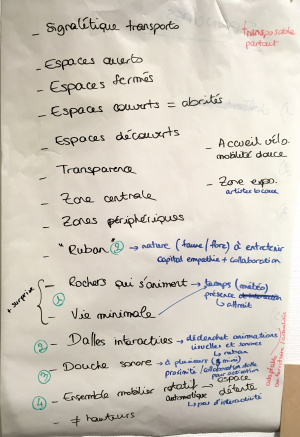 - Signalétique transports
transposable
partout
- Espaces ouverts
- Espaces fermés
- Espaces couverts = abrités
- Espaces découverts
- Accueil vélo
mobilité douce
- Transparence
- Zone expo.
artistes locaux
- Zone centrale
- Zones périphériques
- "Ruban" 2 → nature (faune / flore) à entretenir
capital empathie + collaboration
+ surprise
- Rochers qui s'animent → temps (météo)
présence
1
- Vie minimale
2 - Dalles interactives → déclenchent animations
visuelles et sonores
ruban
3 - Douche sonore → à plusieurs
proximité / collaboration
par activation
4 - Ensemble mobilier rotatif → espace
automatique détente
↳ pas d'interactivité
- ≠ hauteurs